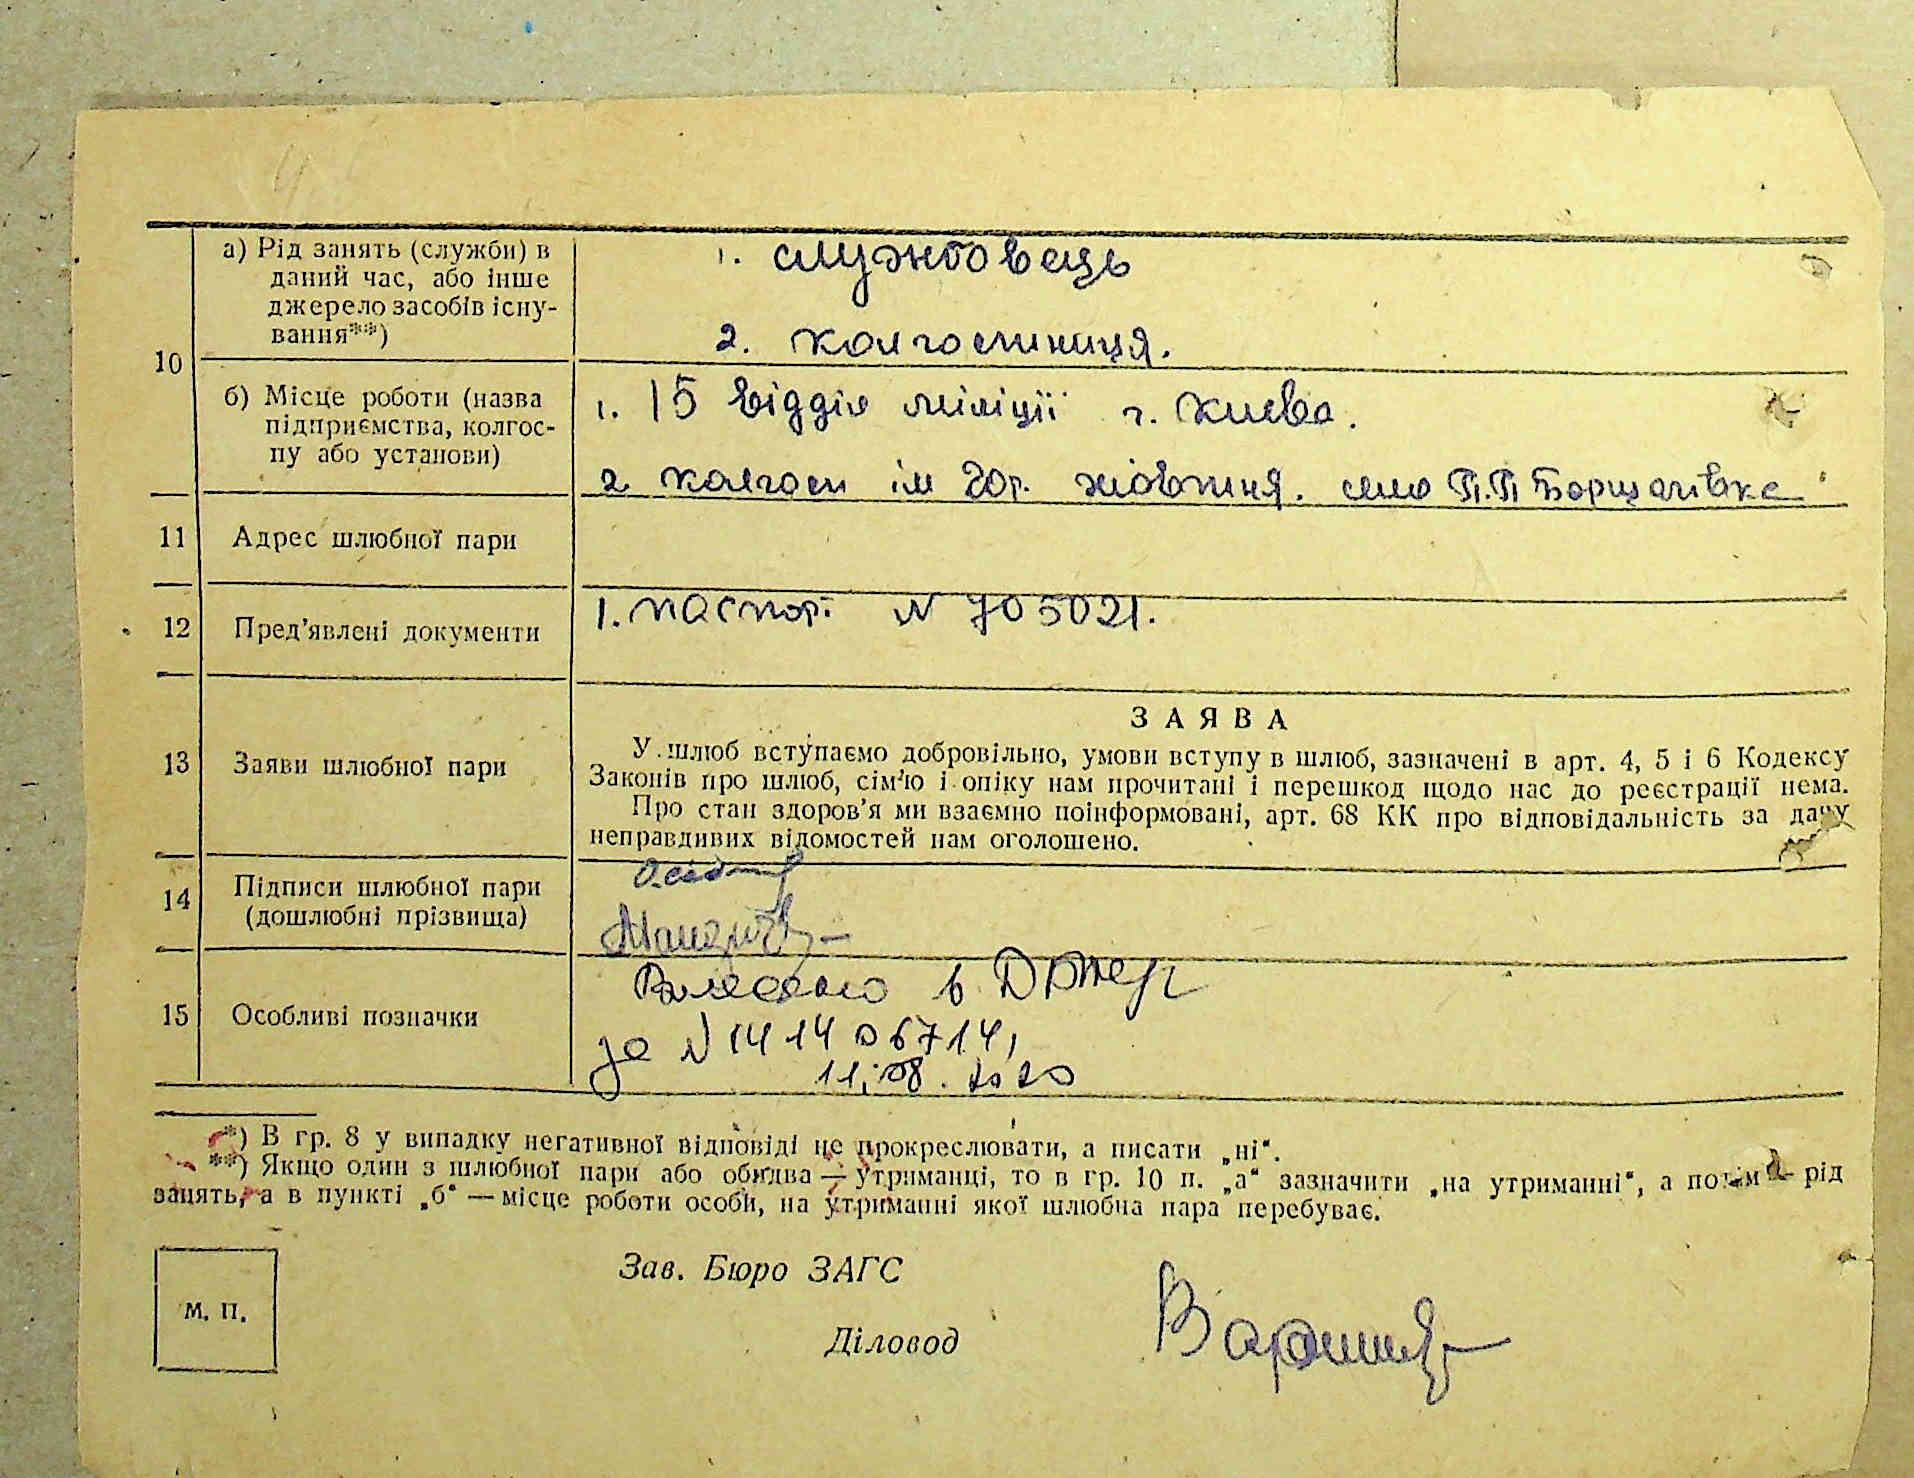 10
а) Рід занять (служби) в
даний час, або інше
джерело засобів існу-
вання**)
1. службовець
2. колгоспниця.
б) Місце роботи (назва
підприємства, колгос-
пу або установи)
1. 15 відділ міліції г. Києва.
2 колгосп ім 20р. жовтня. село П.П Борщагівка
11 Адрес шлюбної пари
12 Пред'явлені документи
1. паспорт N 705021.
13 Заяви шлюбної пари
ЗАЯВА
У шлюб вступаємо добровільно, умови вступу в шлюб, зазначені в арт. 4, 5 і 6 Кодексу
Законів про шлюб, сім'ю і опіку нам прочитані і перешкод щодо нас до реєстрації нема.
Про стан здоров'я ми взаємно поінформовані, арт. 68 КК про відповідальність за дачу
неправдивих відомостей нам оголошено.
14 Підписи шлюбної пари
(дошлюбні прізвища)
15 Особливі позначки
Внесено в ДРАЦС
за N 141406714,
11.08.2020
*) В гр. 8 у випадку негативної відповіді не прокреслювати, а писати „ні“.
**) Якщо один з шлюбної пари або обидва — утриманці, то в гр. 10 п. „а“ зазначити „на утриманні“, а потім рід
занять, а в пункті „б“ — місце роботи особи, на утриманні якої шлюбна пара перебуває.
М. П.
Зав. Бюро ЗАГС
Діловод